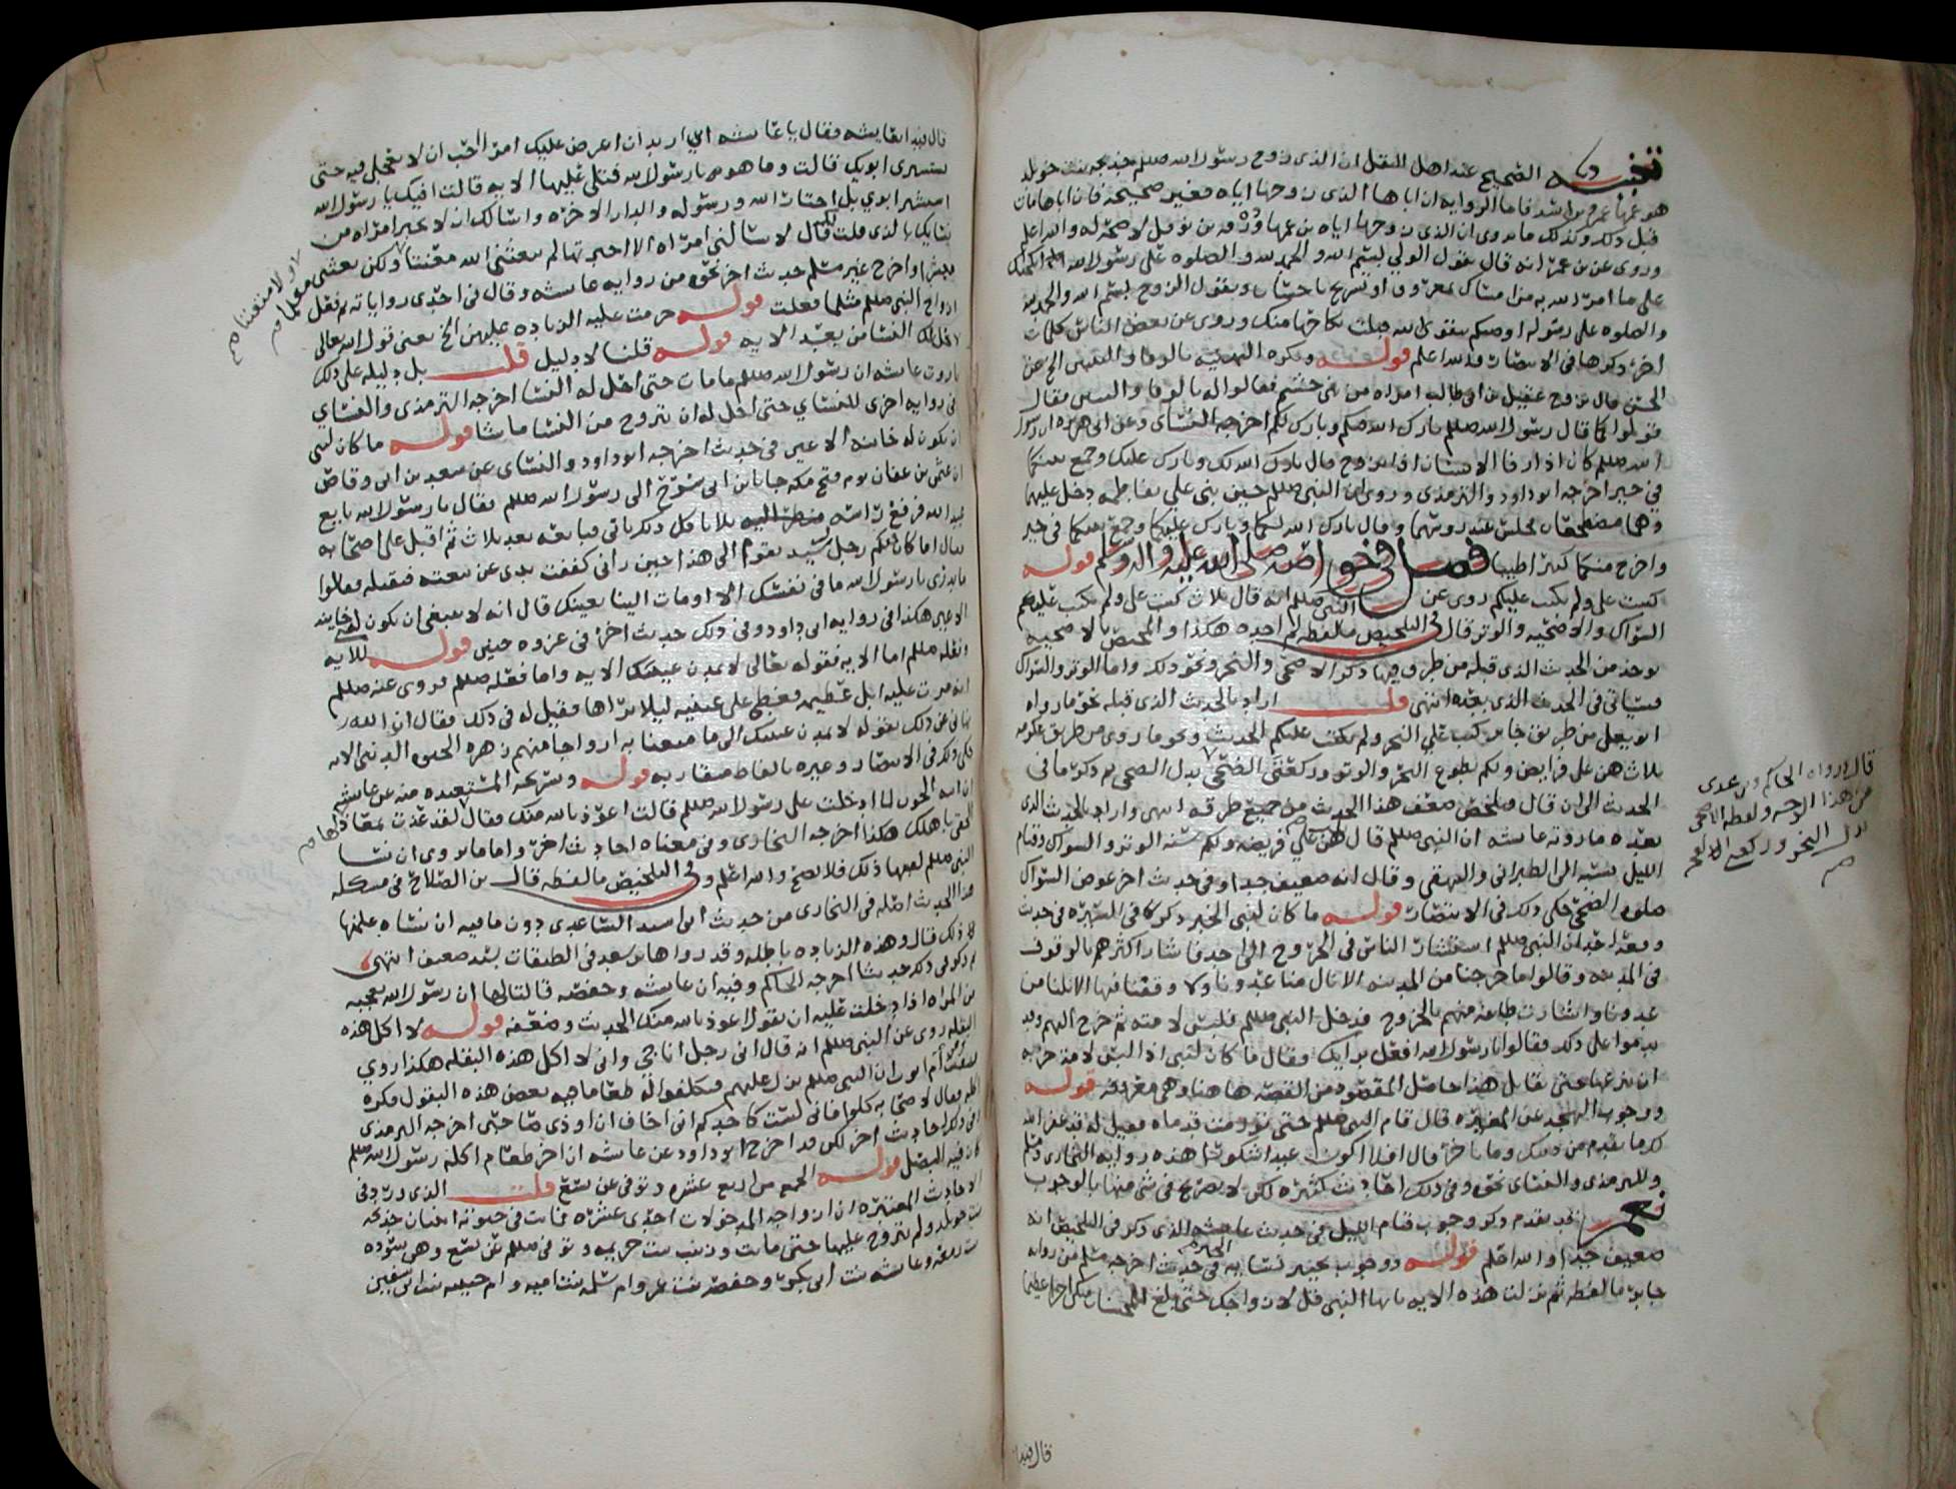 تنبيه الصحيح عند اهل النقل ان الذي زوج رسول الله صللم خديجه بنت خويلد
هو عمها عمرو بن اسد فاما الروايه ان اباها الذي زوجها اياه فغير صحيحه فان اباها مات
قبل ذلك وكذلك ما روي ان الذي زوجها اياه بن عمها ورقه بن نوفل لا صحة له والله اعلم
وروي عن بن عمر انه قال يقول الولي بسم الله والحمد لله والصلوه على رسول الله انكحتك
على ما امر الله به من امساك بمعروف او تسريح باحسان ويقول الزوج بسم الله والحمد لله
والصلوه على رسوله اوصيكم بتقوى الله قبلت نكاحها منك وروي عن بعض الناس كلمات
اخر ذكرها في الانتصار والله اعلم قوله ويكره التهنيه بالرفا والبنين الخ عن
الحسن قال تزوج عقيل بن ابي طالب امراه من بني جشم فقالوا له بالرفا والبنين فقال
قولوا كما قال رسول الله صللم بارك الله فيكم وبارك لكم اخرجه النسائ وعن ابي هريره ان رسول
الله صللم كان اذا رفا الانسان اذا تزوج قال بارك الله لك وبارك عليك وجمع بينكما
في خير اخرجه ابو داود والترمذي وروي ان النبي صللم حين بنى علي بفاطمه دخل عليهما
وهما مضطجعان فجلس عند روسهما وقال بارك الله لكما وبارك عليكما وجمع بينكما في خير
واخرج منكما كثيرا طيبا فصل في خواصه صلى الله عليه واله وسلم قوله
كتبت علي ولم تكتب عليكم روي عن النبي صللم انه قال ثلاث كتبت علي ولم تكتب عليكم
السواك والاضحيه والوتر قال في التلخيص ما لفظه لم اجده هكذا والمحض بالاضحيه
يوخذ من الحديث الذي قبله من طرق وفيها ذكر الاضحى والنحر ونحو ذلك واما الوتر والسواك
فسياتي في الحديث الذي بعده انتهى قلت اراد بالحديث الذي قبله نحو ما رواه
ابو يعلى من طريق جابر كتب علي النحر ولم يكتب عليكم الحديث ونحو ما روي من طريق عكرمه
ثلاث هن علي فرايض ولكم تطوع النحر والوتر وركعتي الضحى بدل الضحى ثم ذكر ما في
الحديث الى ان قال وتلخص ضعف هذا الحديث من جميع طرقه انتهى واراد بالحديث الذي
بعده ما روته عايشه ان النبي صللم قال هن علي فريضه ولكم سنه الوتر والسواك وقيام
الليل نسبه الى الطبراني والبيهقي وقال انه ضعيف جدا وفي حديث اخر عوض السواك
صلوه الضحى حكى ذلك في الانتصار قوله ما كان لنبي الخبر ذكره في السيره في حديث
وقعة احد ان النبي صللم استشار الناس في الخروج الى احد فاشار اكثرهم بالوقوف
في المدينه وقالوا ما خرجنا من المدينه الا نال منا عدونا ولا وقفنا فيها الا نلنا من
عدونا واشارت طايفه منهم بالخروج فدخل النبي صللم فلبس لامته ثم خرج اليهم وقد
ندموا على ذلك فقالوا يا رسول الله افعل برايك فقال ما كان لنبي اذا لبس لامة حربه
ان ينزعها حتى يقاتل هذا حاصل المقصود من القصه هاهنا وهي معروفه قوله
ووجوب التهجد عن المغيره قال قام النبي صللم حتى تورمت قدماه فقيل له قد غفر الله
لك ما تقدم من ذنبك وما تاخر قال افلا اكون عبدا شكورا هذه روايه البخاري ومسلم
وللترمذي والنسائ نحوه وفي ذلك احاديث كثيره لكن لا تصريح في شي منها بالوجوب
نعم قد تقدم ذكر وجوب قيام الليل في حديث عايشه الذي ذكر في التلخيص انه
ضعيف جدا والله اعلم قوله ووجوب تخيير نسايه في حديث اخرجه مسلم من روايه
جابر ما لفظه ثم نزلت هذه الايه يا ايها النبي قل لازواجك حتى بلغ للمحسنات منكن اجرا عظيما
قال ورواه الحاكم وبن عدي
من هذا الوجه ولفظه الاضحى
بدل النحر وركعتي الفجر
قال فبدا
قال فبدا بعايشه فقال يا عايشه اني اريد ان اعرض عليك امرا احب ان لا تعجلي فيه حتى
تستشيري ابويك قالت وما هو يا رسول الله فتلى عليها الايه قالت افيك يا رسول الله
استشير ابوي بل اختار الله ورسوله والدار الاخره واسالك ان لا تخبر امراه من
نسايك بالذي قلت قال لا تسالني امراه الا اخبرتها لم يبعثني الله معنتا ولكن بعثني معلما
ميسرا واخرج غير مسلم حديث اخر نحوه من روايه عايشه وقال في احدى رواياته ثم فعل
ازواج النبي صللم مثلما فعلت قوله حرمت عليه الزياده عليهن الخ يعني قول الله تعالى
لا تحل لك النسا من بعد الايه قوله قلنا لا دليل قلت بل دليله على ذلك
ما روت عايشه ان رسول الله صللم ما مات حتى احل له النسا اخرجه الترمذي والنسائ
في روايه اخرى للنسائ حتى احل له ان يتزوج من النسا ما شا قوله ما كان لنبي
ان يكون له خاينه الاعين في حديث اخرجه ابو داود والنسائ عن سعد بن ابي وقاص
ان عثمن بن عفان يوم فتح مكه جا بابن ابي سرح الى رسول الله صللم فقال يا رسول الله بايع
عبد الله فرفع راسه فنظر اليه ثلاثا كل ذلك ياتي فبايعه بعد ثلاث ثم اقبل على اصحابه
فقال اما كان فيكم رجل رشيد يقوم الى هذا حين راني كففت يدي عن بيعته فيقتله فقالوا
ما ندري يا رسول الله ما في نفسك الا اومات الينا بعينك قال انه لا ينبغي لنبي ان تكون له خاينه
الاعين هكذا في روايه ابي داود وفي ذلك حديث اخر في غزوه حنين قوله للايه
وفعله صللم اما الايه فقوله تعالى لا تمدن عينيك الايه واما فعله صللم فروي عنه صللم
انه مرت عليه ابل عظيمه فغطى على عينيه ليلا يراها فقيل له في ذلك فقال ان الله
نهاني عن ذلك بقوله لا تمدن عينيك الى ما متعنا به ازواجا منهم زهره الحيوه الدنيا الايه
حكى ذلك في الانتصار وغيره بالفاظ متقاربه قوله وتسريحه المستعيذه منه عن عايشه
ان ابنه الجون لما ادخلت على رسول الله صللم قالت اعوذ بالله منك فقال لقد عذت بمعاذ
الحقي باهلك هكذا اخرجه البخاري وفي معناه احاديث اخر واما ما روي ان نسا
النبي صللم لقنها ذلك فلا يصح والله اعلم وفي التلخيص ما لفظه قال بن الصلاح في مشكله
هذا الحديث اصله في البخاري من حديث ابي اسيد الساعدي دون ما فيه ان نساه علمنها
ذلك قال وهذه الزياده باطله وقد رواها بن سعد في الطبقات بسند ضعيف انتهى
ثم ذكر في ذلك حديثا اخرجه الحاكم وفيه ان عايشه وحفصه قالتا لها ان رسول الله يعجبه
من المراه اذا دخلت عليه ان تقول اعوذ بالله منك الحديث وضعفه قوله لا اكل هذه
البقله روي عن النبي صللم انه قال اني رجل اناجي واني لا اكل هذه البقله هكذا روي
ام ايوب ان النبي صللم نزل عليهم فتكلفوا له طعاما فيه بعض هذه البقول فكره
اكله فقال لاصحابه كلوا فاني لست كاحدكم اني اخاف ان اوذي صاحبي اخرجه الترمذي
وفي ذلك احاديث اخر لكن قد اخرج ابو داود عن عايشه ان اخر طعام اكله رسول الله صللم
كان فيه البصل قوله الجمع من اربع عشره وتوفي عن تسع قلت الذي ورد في
الاحاديث المعتبره ان ازواجه المدخولات احدى عشره ماتت في حيوته اثنتان خديجه
بنت خويلد ولم يتزوج عليها حتى ماتت وزينب بنت خزيمه وتوفي صللم عن تسع وهن سوده
بنت زمعه وعايشه بنت ابي بكر وحفصه بنت عمر وام سلمه بنت ابي اميه وام حبيبه بنت ابي سفين
ولا متعنتا